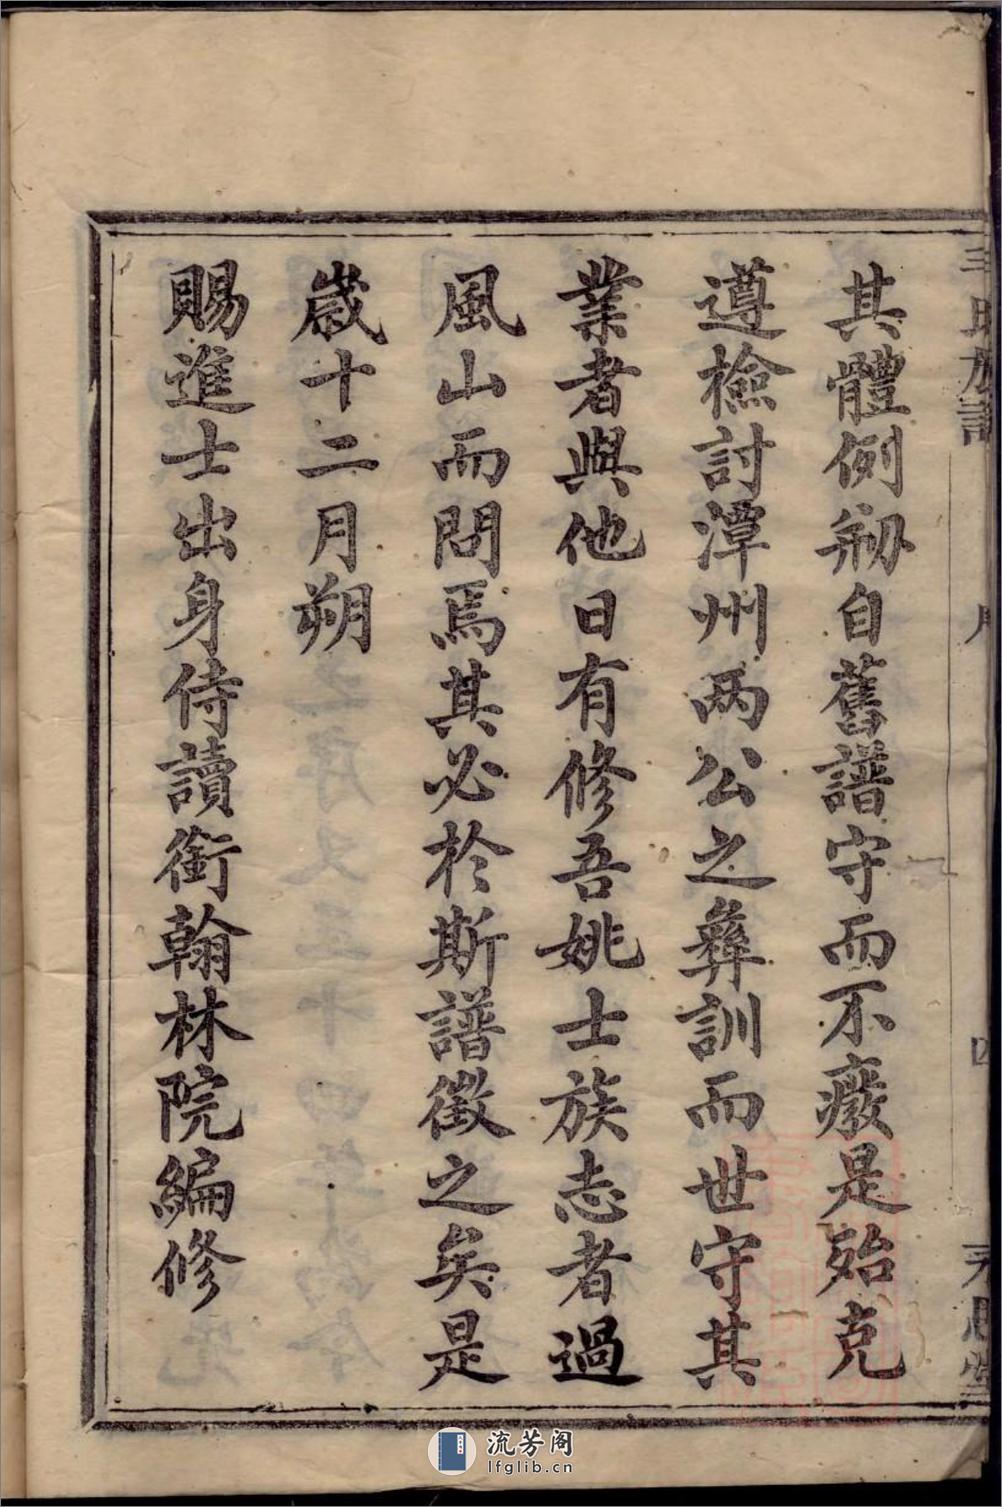 其體例刱自舊譜守而不癈是殆克
遵檢討潭州两公之彝訓而世守其
業者與他日有修吾姚士族志者過
風山而問焉其必於斯譜徵之矣是
歲十二月朔
賜進士出身侍讀銜翰林院編修
流芳阁
lfglib.cn